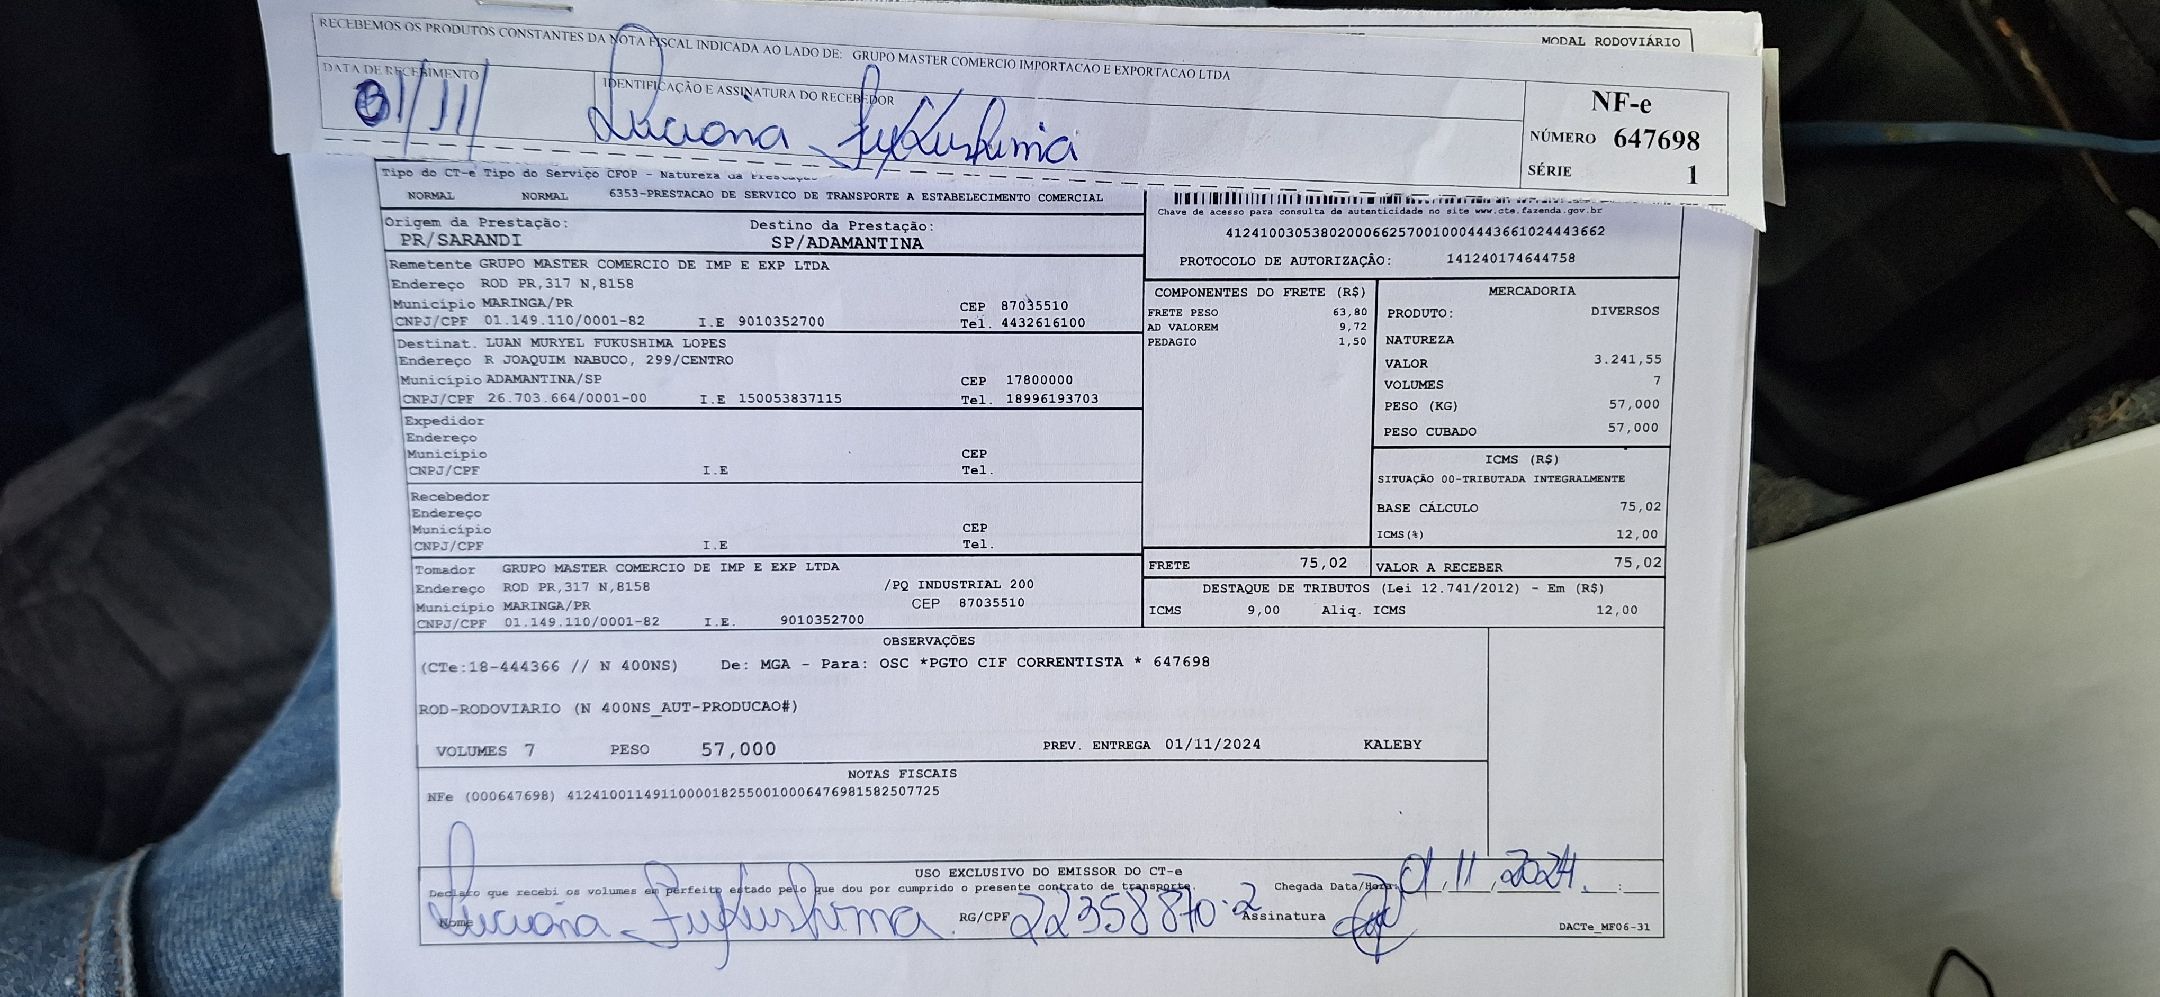 RECEBEMOS OS PRODUTOS CONSTANTES DA NOTA FISCAL INDICADA AO LADO DE: GRUPO MASTER COMERCIO IMPORTACAO E EXPORTACAO LTDA
MODAL RODOVIÁRIO
DATA DE RECEBIMENTO
01/11/
IDENTIFICAÇÃO E ASSINATURA DO RECEBEDOR
Luciana Fukushima
NF-e
NÚMERO 647698
SÉRIE 1
Tipo do CT-e Tipo do Serviço CFOP - Natureza da Prestação
NORMAL NORMAL 6353-PRESTACAO DE SERVICO DE TRANSPORTE A ESTABELECIMENTO COMERCIAL
Chave de acesso para consulta de autenticidade no site www.cte.fazenda.gov.br
41241003053802000662570010004443661024443662
PROTOCOLO DE AUTORIZAÇÂO: 141240174644758
Origem da Prestação: Destino da Prestação:
PR/SARANDI SP/ADAMANTINA
Remetente GRUPO MASTER COMERCIO DE IMP E EXP LTDA
Endereço ROD PR,317 N,8158
Município MARINGA/PR CEP 87035510
CNPJ/CPF 01.149.110/0001-82 I.E 9010352700 Tel. 4432616100
Destinat. LUAN MURYEL FUKUSHIMA LOPES
Endereço R JOAQUIM NABUCO, 299/CENTRO
Município ADAMANTINA/SP CEP 17800000
CNPJ/CPF 26.703.664/0001-00 I.E 150053837115 Tel. 18996193703
Expedidor
Endereço
Município CEP
CNPJ/CPF I.E Tel.
Recebedor
Endereço
Município CEP
CNPJ/CPF I.E Tel.
Tomador GRUPO MASTER COMERCIO DE IMP E EXP LTDA
Endereço ROD PR,317 N,8158 /PQ INDUSTRIAL 200
Município MARINGA/PR CEP 87035510
CNPJ/CPF 01.149.110/0001-82 I.E. 9010352700
COMPONENTES DO FRETE (R$)
FRETE PESO 63,80
AD VALOREM 9,72
PEDAGIO 1,50
MERCADORIA
PRODUTO: DIVERSOS
NATUREZA
VALOR 3.241,55
VOLUMES 7
PESO (KG) 57,000
PESO CUBADO 57,000
ICMS (R$)
SITUAÇÃO 00-TRIBUTADA INTEGRALMENTE
BASE CÁLCULO 75,02
ICMS(%) 12,00
FRETE 75,02 VALOR A RECEBER 75,02
DESTAQUE DE TRIBUTOS (Lei 12.741/2012) - Em (R$)
ICMS 9,00 Aliq. ICMS 12,00
OBSERVAÇÕES
(CTe:18-444366 // N 400NS) De: MGA - Para: OSC *PGTO CIF CORRENTISTA * 647698
ROD-RODOVIARIO (N 400NS_AUT-PRODUCAO#)
VOLUMES 7 PESO 57,000 PREV. ENTREGA 01/11/2024 KALEBY
NOTAS FISCAIS
NFe (000647698) 41241001149110000182550010006476981582507725
USO EXCLUSIVO DO EMISSOR DO CT-e
Declaro que recebi os volumes em perfeito estado pelo que dou por cumprido o presente contrato de transporte. Chegada Data/Hora: 01.11.2024. :
Nome Luciana Fukushima. RG/CPF 22358870-2 Assinatura
DACTe_MF06-31